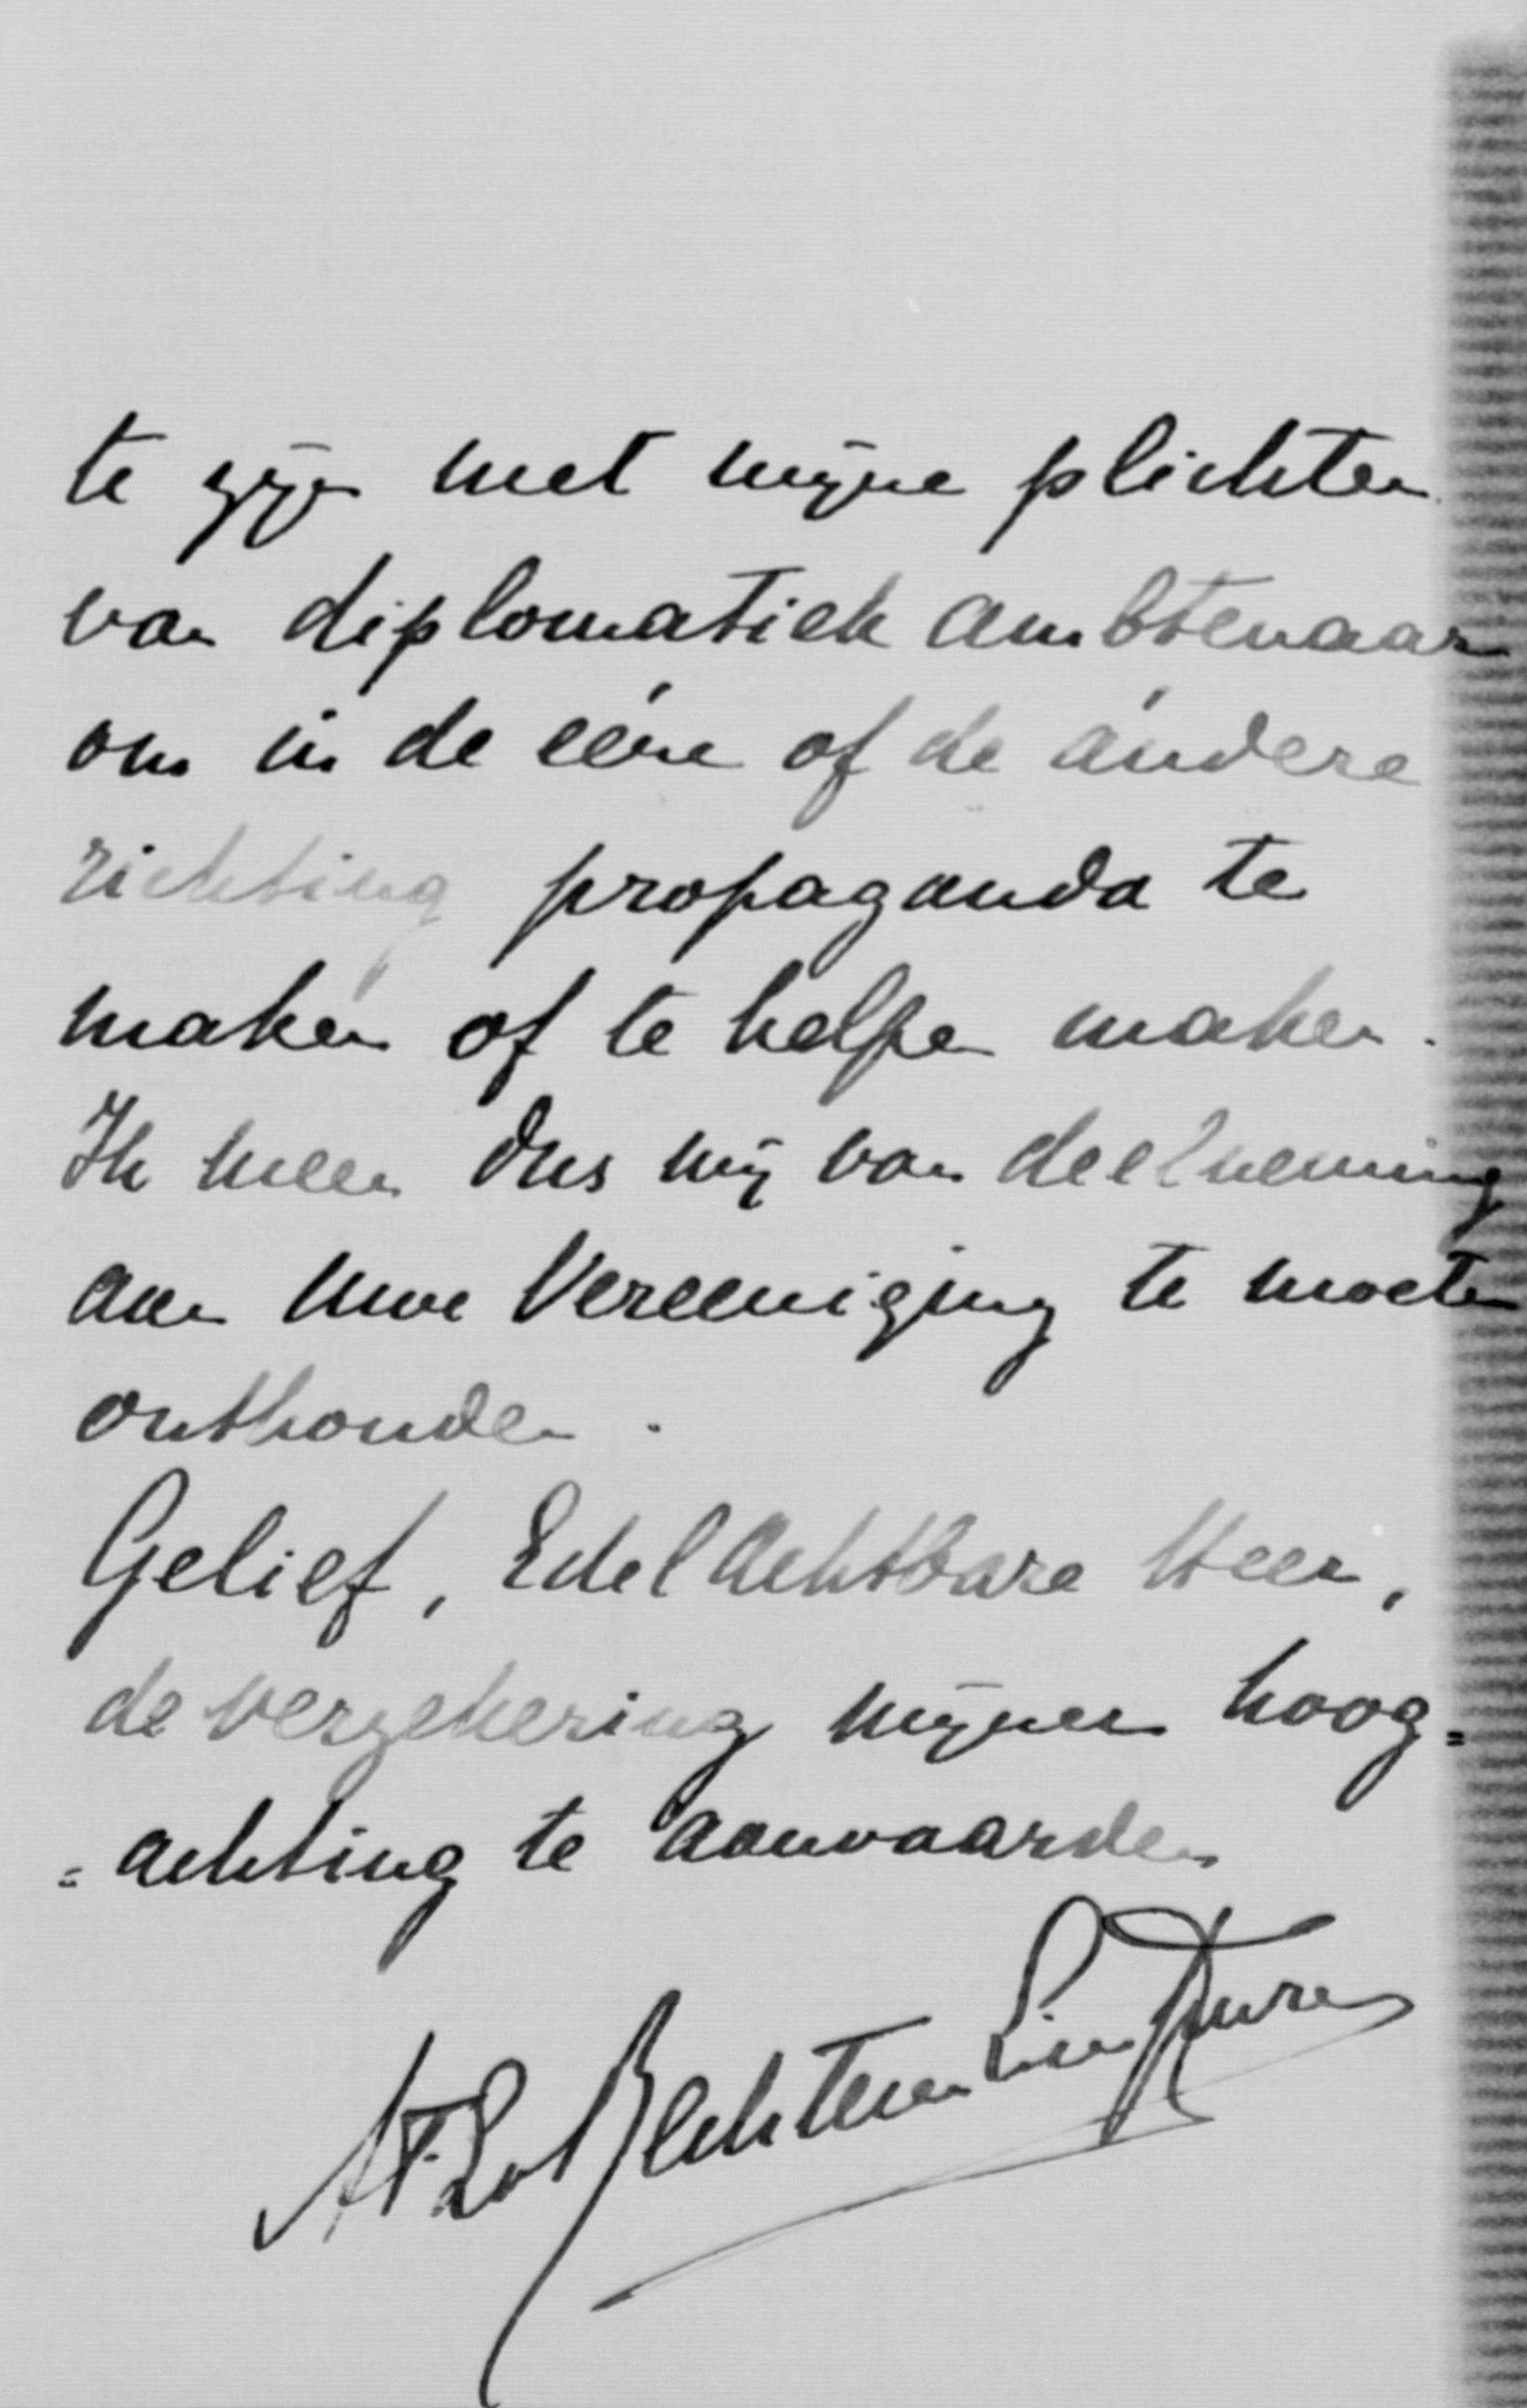 te zijn met mijne plichten
van diplomatiek ambtenaar
om in de ééne of de ándere
richting propaganda te
maken of te helpen maken.
Ik meen dus mij van deelneming
aan Uwe Vereeniging te moeten
onthouden.
Gelief, EdelAchtbare Heer,
de verzekering mijner hoog=
=achting te aanvaarden